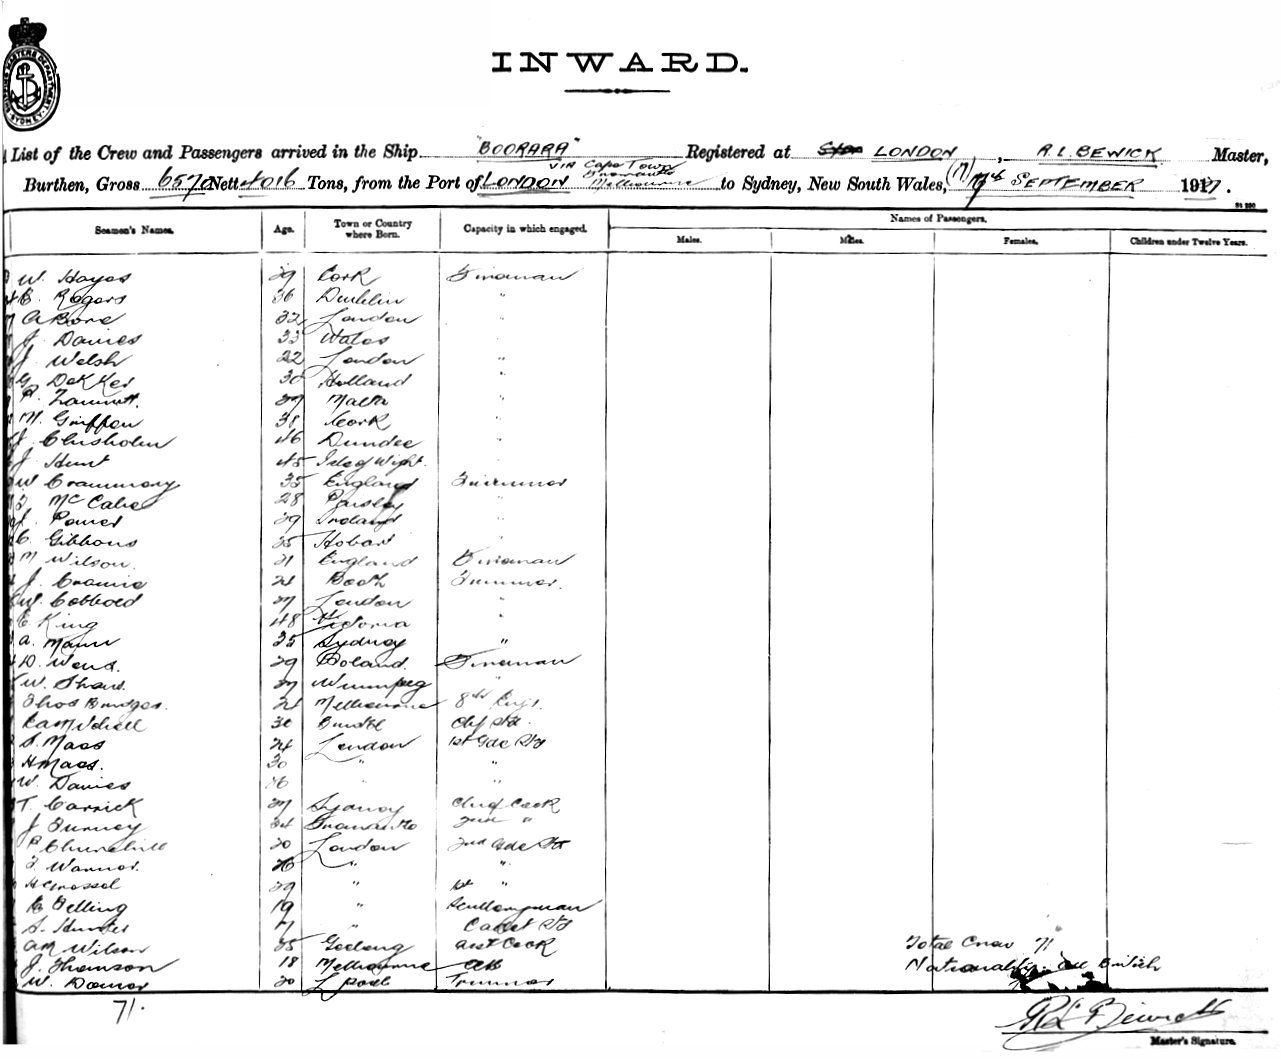 SHIPPING MASTERS DEPARTMENT SYDNEY
INWARD.
List of the Crew and Passengers arrived in the Ship "BOORARA" Registered at LONDON, R L BEWICK Master,
VIA Cape Town Fremantle Melbourne
Burthen, Gross 6570 Nett 4016 Tons, from the Port of LONDON to Sydney, New South Wales, (17) 17th SEPTEMBER 1917.
Names of Passengers.
Seamen's Names. Age. Town or Country where Born. Capacity in which engaged. Males. Males. Females. Children under Twelve Years.
W. Hayes 29 Cork Fireman
Rogers 36 Dublin "
A Bone 32 London "
J. Davies 33 Wales "
J. Welsh 22 London "
G. Dekker 30 Holland "
Zammit. 27 Malta "
M. Griffen 38 Cork "
J. Chisholm 46 Dundee "
J. Hunt 45 Isle of Wight.
W 35 England Trimmer
McCabe 28 Paisley "
J. Power 29 Ireland "
C. Gibbons 25 Hobart "
M Wilson. 21 England Fireman
J. 24 Trimmer.
W. Cobbold 27 London "
E King 48 Victoria "
A. Mann 25 Sydney "
D. 29 Poland. Fireman
W. Shaw. 27 Winnipeg "
Thos Bridges. 24 Melbourne 8th Engr.
30 Bristol Chf Std.
S. Maas 24 London 1st Gde Std
H Maas. 30 " "
W. Davies 16 " "
T. Carrick 27 Sydney Chief Cook
J 24 Fremantle 2nd "
Churchill 20 London 2nd Gde Std
Warner. 26 " "
29 " 1st "
19 " Sculleryman
S. Hunter 17 " Cadet Std
AM Wilson 25 Geelong Asst Cook
Total Crew 71
J. Thomson 18 Melbourne AB
Nationality. All British
W. 20 L'pool Trimmer
71.
R L Bewick
Master's Signature.